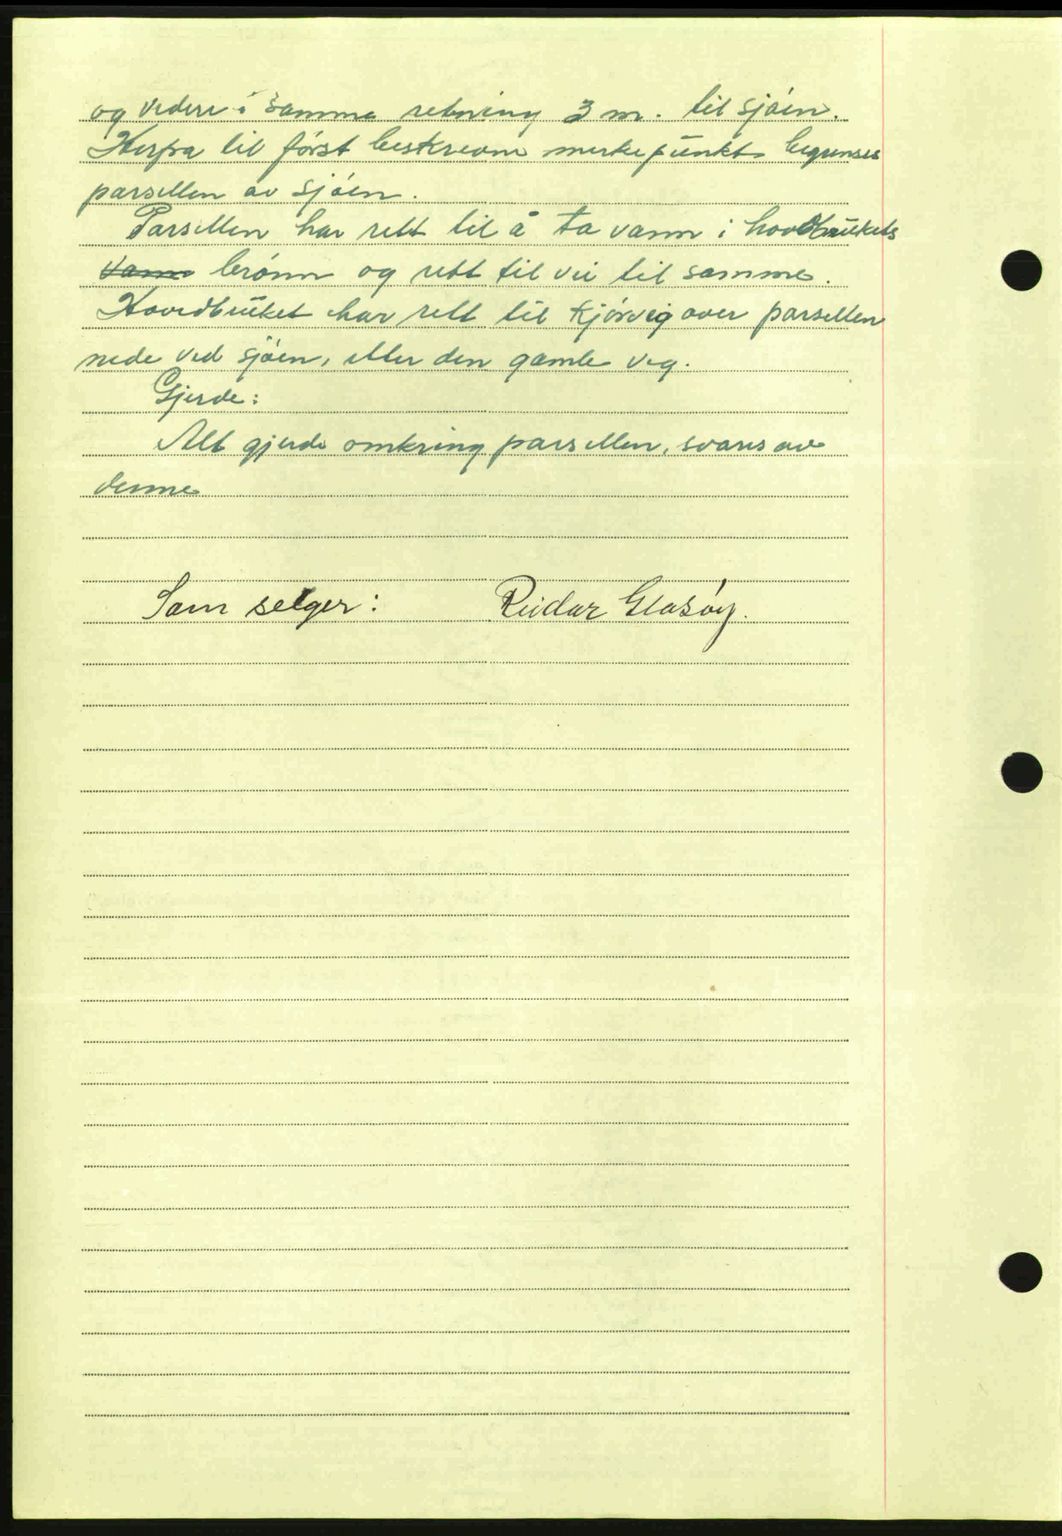 og videre i samme retning 3 m. til sjøen.
Herfra til først beskrevne merkepunkt begrenses
parsellen av sjøen.
Parsellen har rett til å ta vann i hovedbrukets
vann brønn og rett til vei til samme.
Hovedbruket har rett til kjørveg over parsellen
nede ved sjøen, etter den gamle veg.
Gjerde:
Alt gjerde omkring parsellen, svares av
denne
Som selger: Reidar Glasøy.